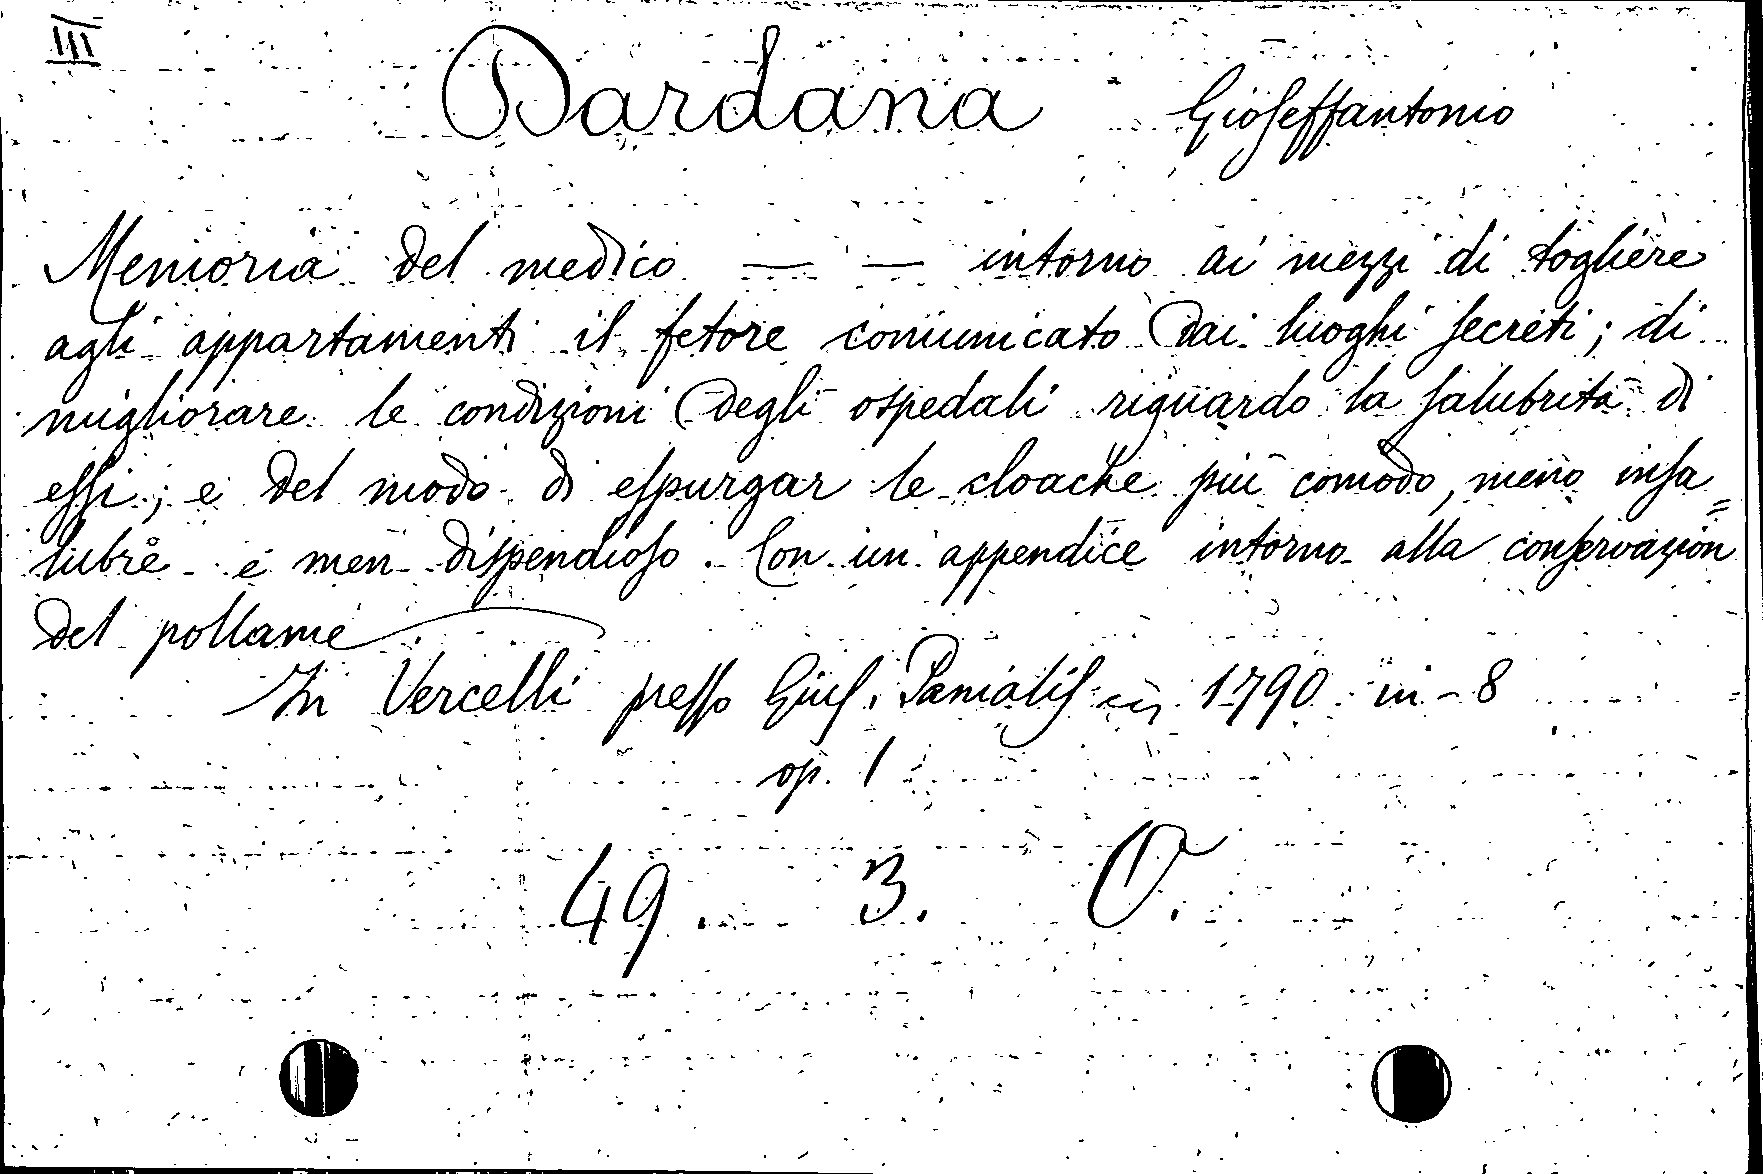 III
Dardana Gioseffantonio
Memoria del medico — — intorno ai mezzi di togliere
agli appartamenti il fetore comunicato dai luoghi secreti; di
migliorare le condizioni degli ospedali riguardo la salubrità di
essi; e del modo di espurgar le cloache più comodo, meno insa=
lubre e men dispendioso. Con un appendice intorno alla conservazion
del pollame
In Vercelli presso Gius. Panialis 1790 in-8
op. 1
49. 3. O.